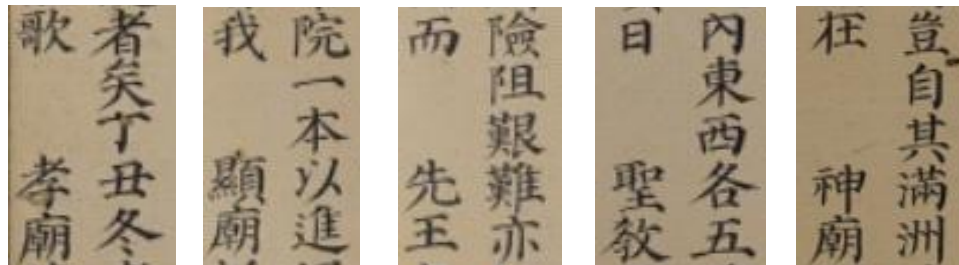 者矣丁丑冬
歌 孝廟
院一本以進
我 顯廟
險阻艱難亦
而 先王
內東西各五
日 聖敎
豈自其滿洲
在 神廟